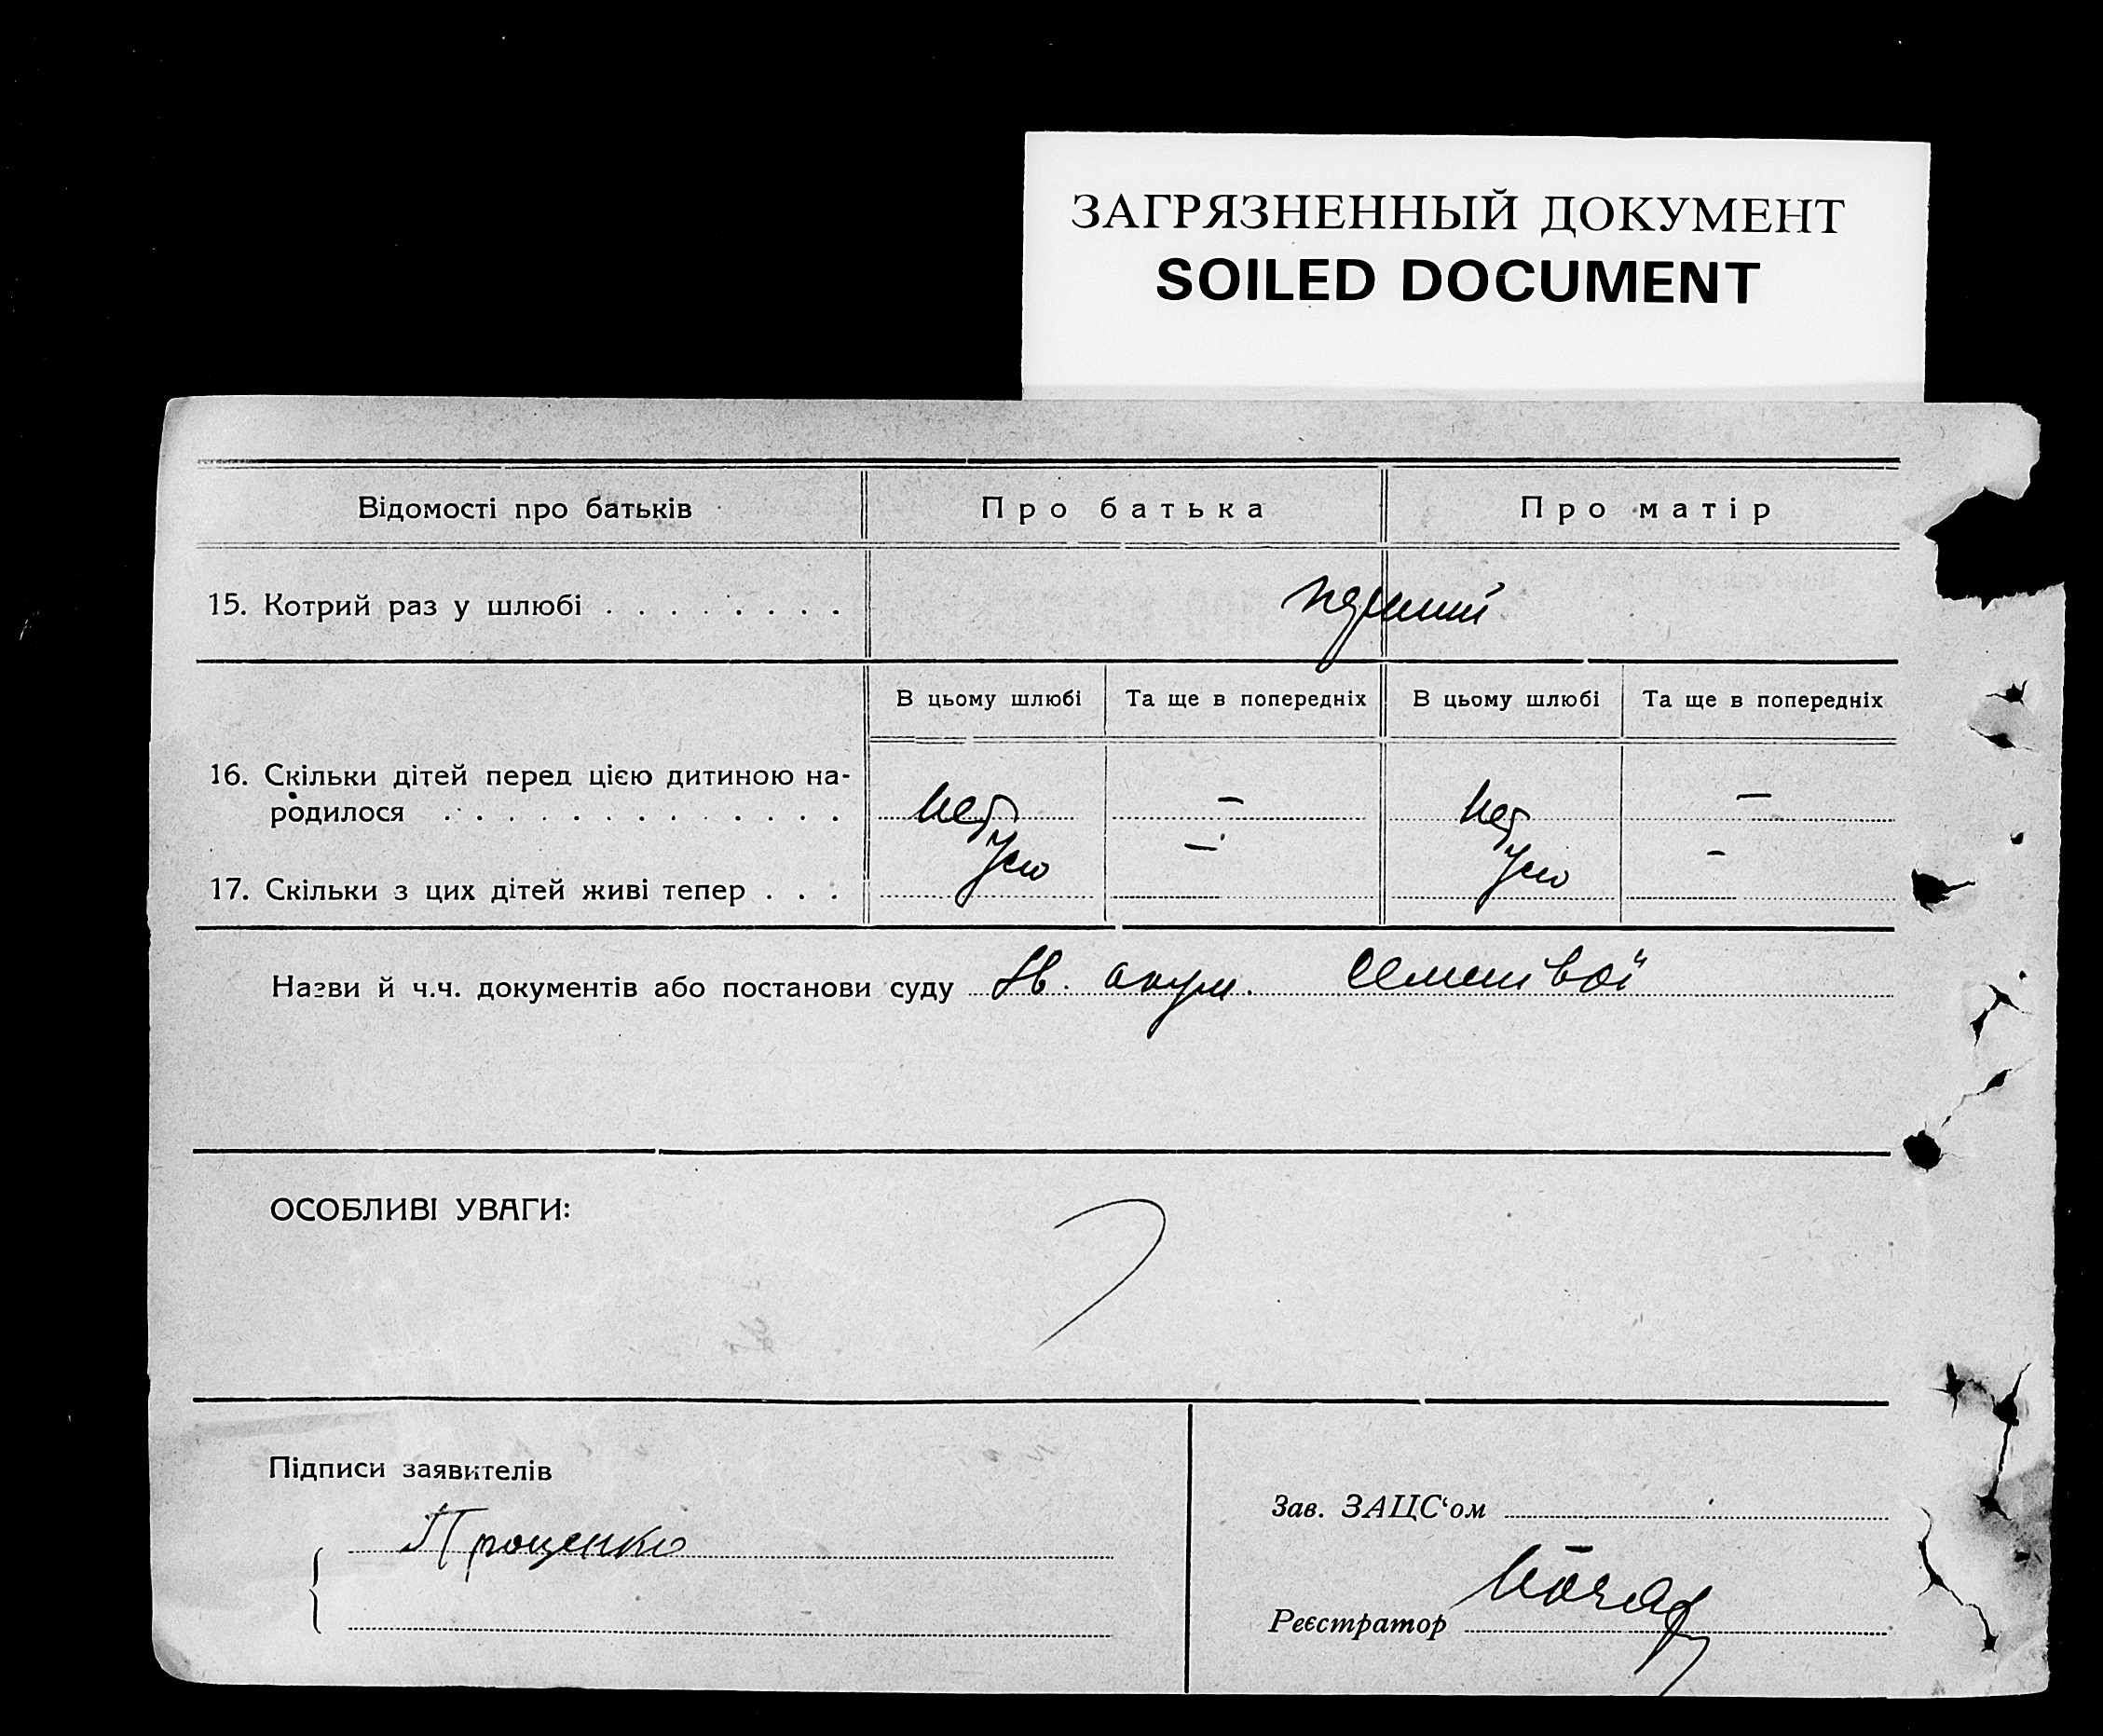 ЗАГРЯЗНЕННЫЙ ДОКУМЕНТ
SOILED DOCUMENT
Відомості про батьків Про батька Про матір
15. Котрий раз у шлюбі . . . . . . . . перший
В цьому шлюбі Та ще в попередніх В цьому шлюбі Та ще в попередніх
16. Скільки дітей перед цією дитиною на-
родилося . . . . . . . . . . . . . . нет — нет —
17. Скільки з цих дітей живі тепер . . . — –
Назви й ч.ч. документів або постанови суду акуш.
ОСОБЛИВІ УВАГИ:
Підписи заявителів
Проценко
Зав. ЗАЦС‘ом
Реєстратор